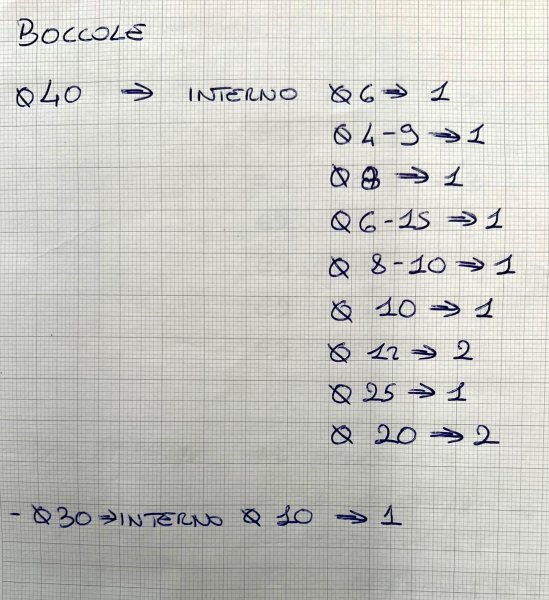 BOCCOLE
Ø40 → INTERNO Ø6 → 1
Ø4-9 → 1
Ø8 → 1
Ø6-15 → 1
Ø 8-10 → 1
Ø 10 → 1
Ø 12 → 2
Ø 25 → 1
Ø 20 → 2
- Ø30 → INTERNO Ø 10 → 1